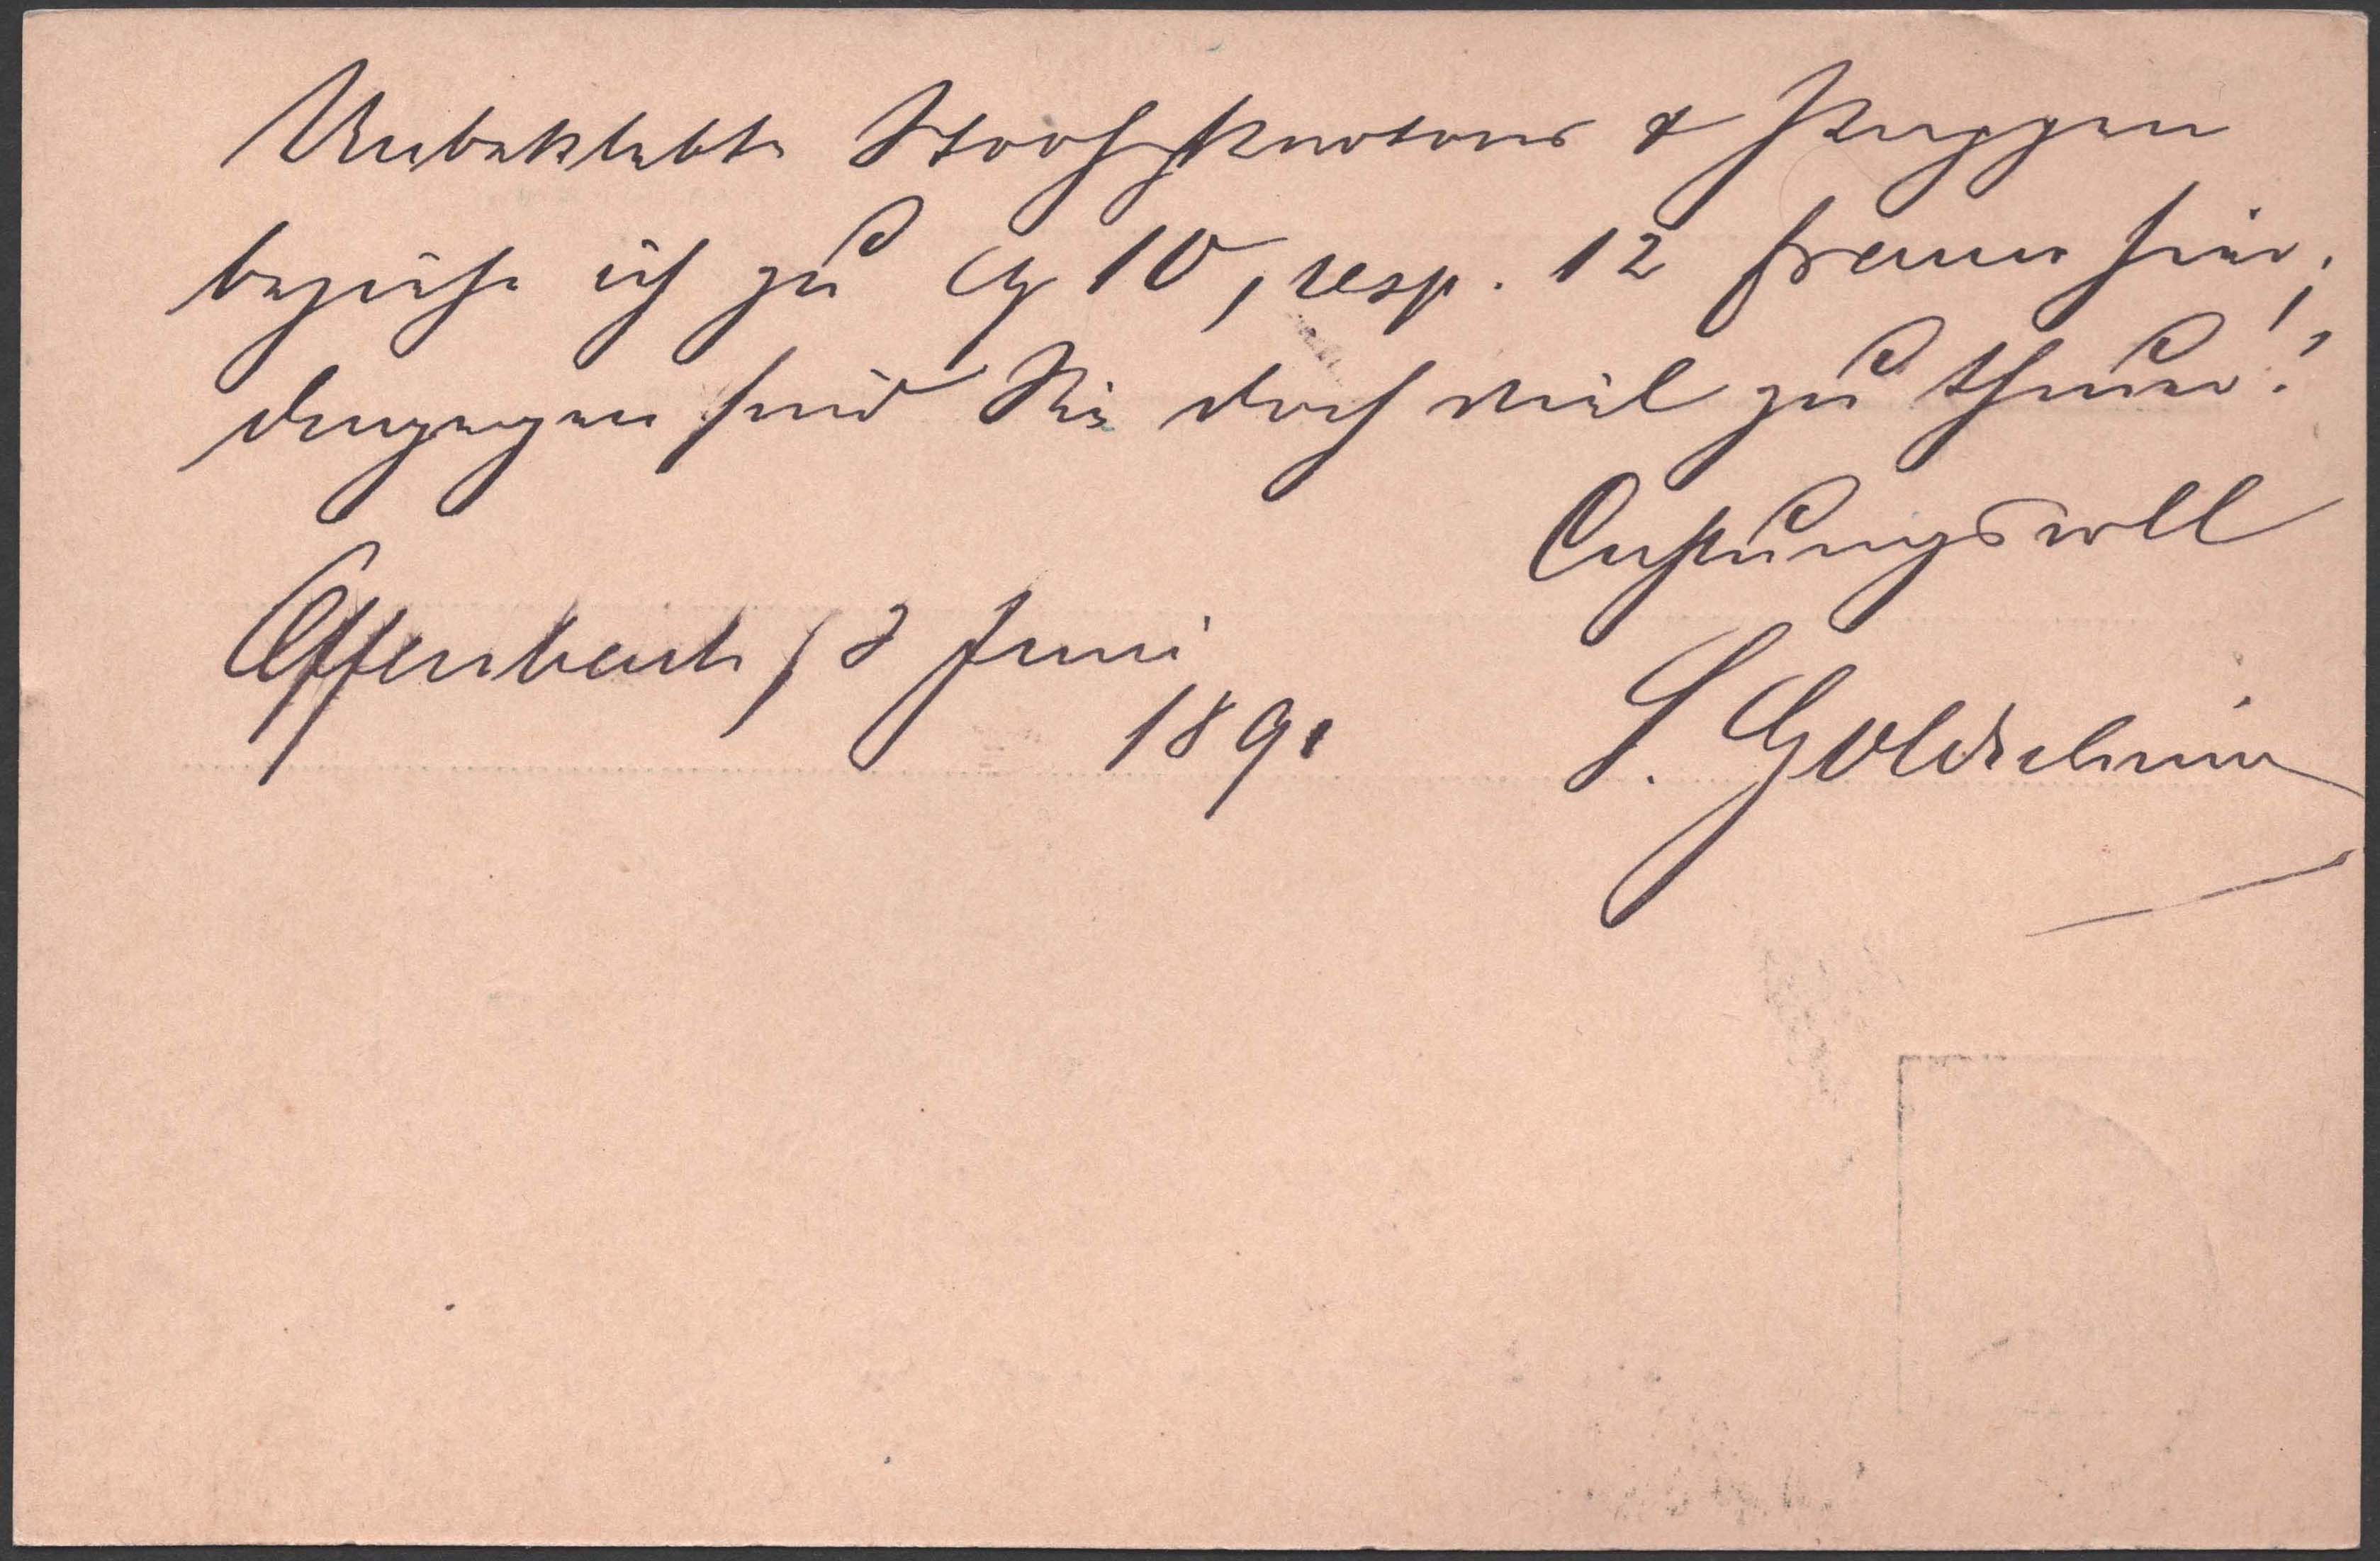 Unbeklebte Strohkartons & Pappen
beziehe ich zu M 10, resp. 12 franco hier;
dagegen sind Sie doch viel zu theuer!
Achtungsvoll
Offenbach, 3 Juni
1891
S. Goldschmidt